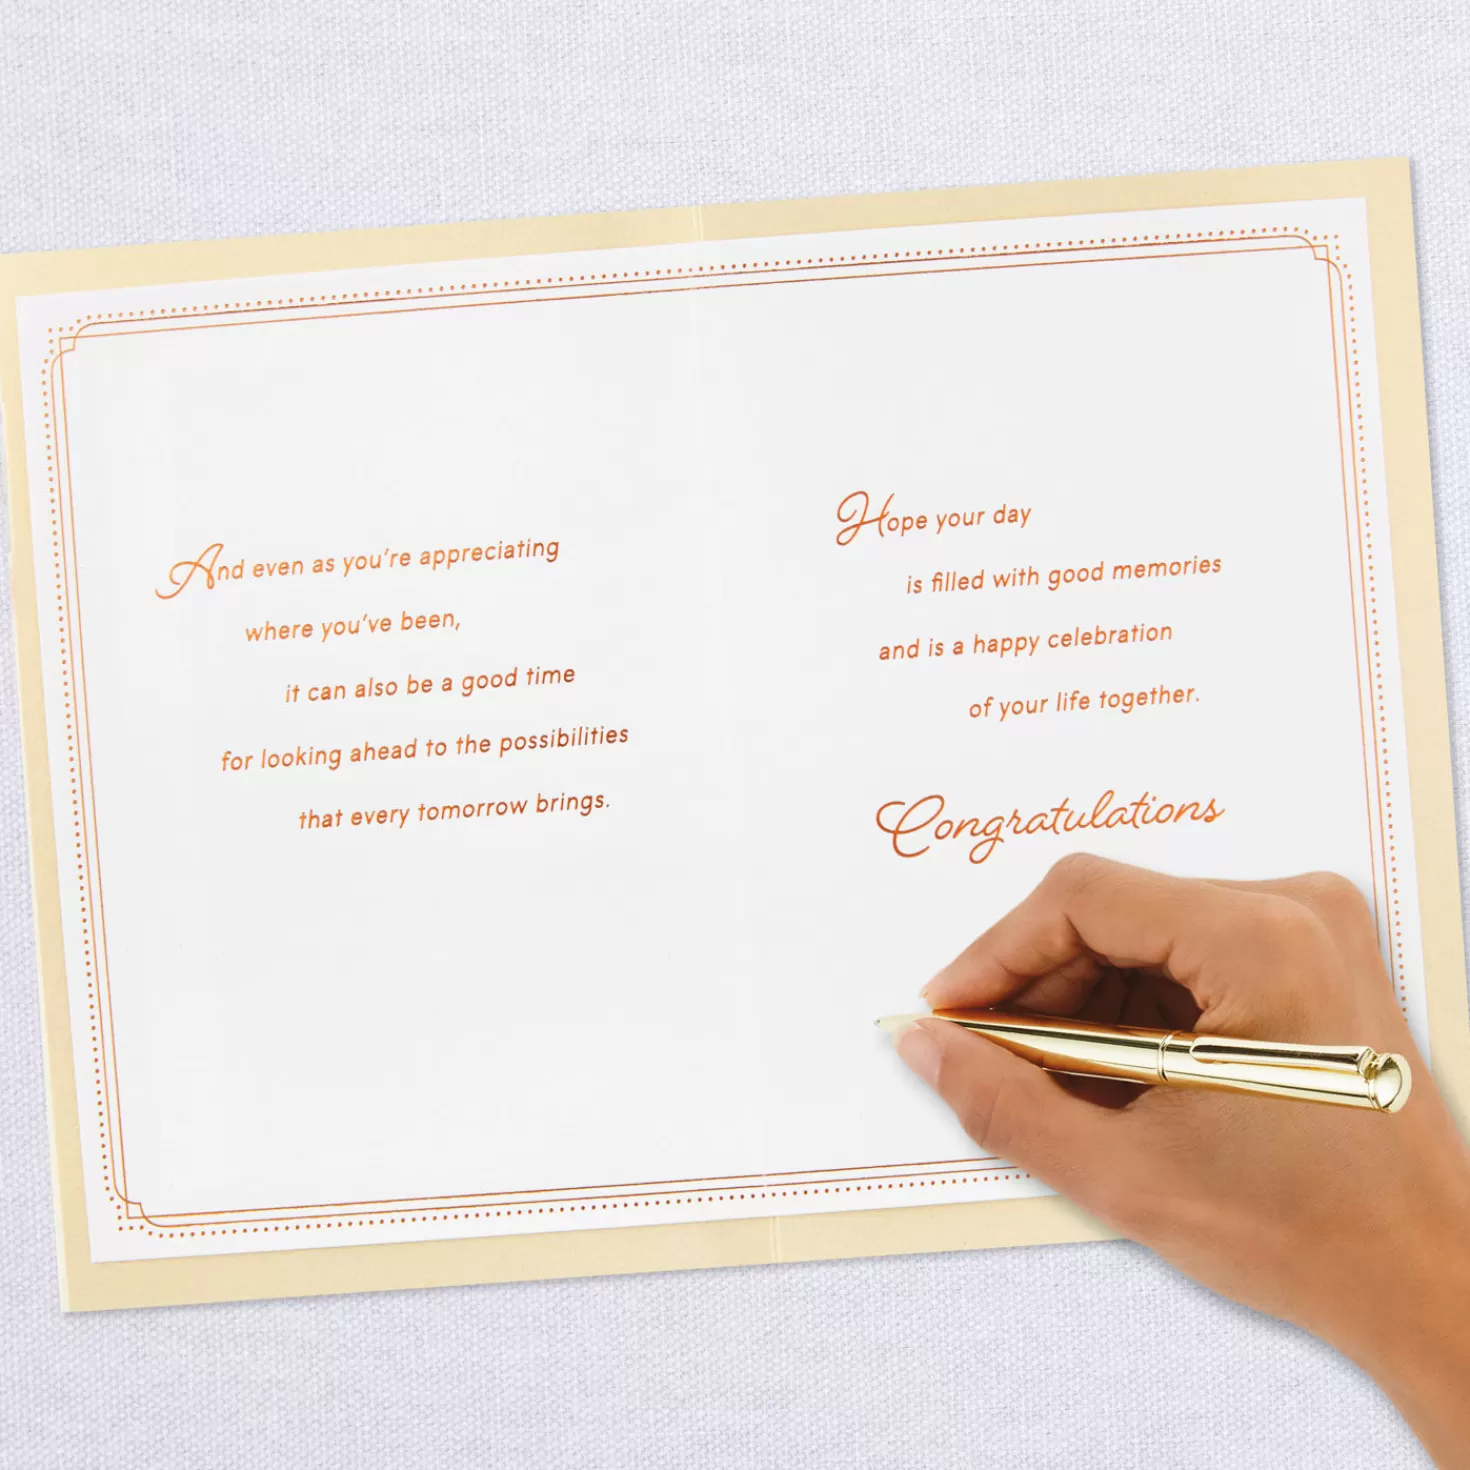 And even as you're appreciating
where you've been,
it can also be a good time
for looking ahead to the possibilities
that every tomorrow brings.
Hope your day
is filled with good memories
and is a happy celebration
of your life together.
Congratulations